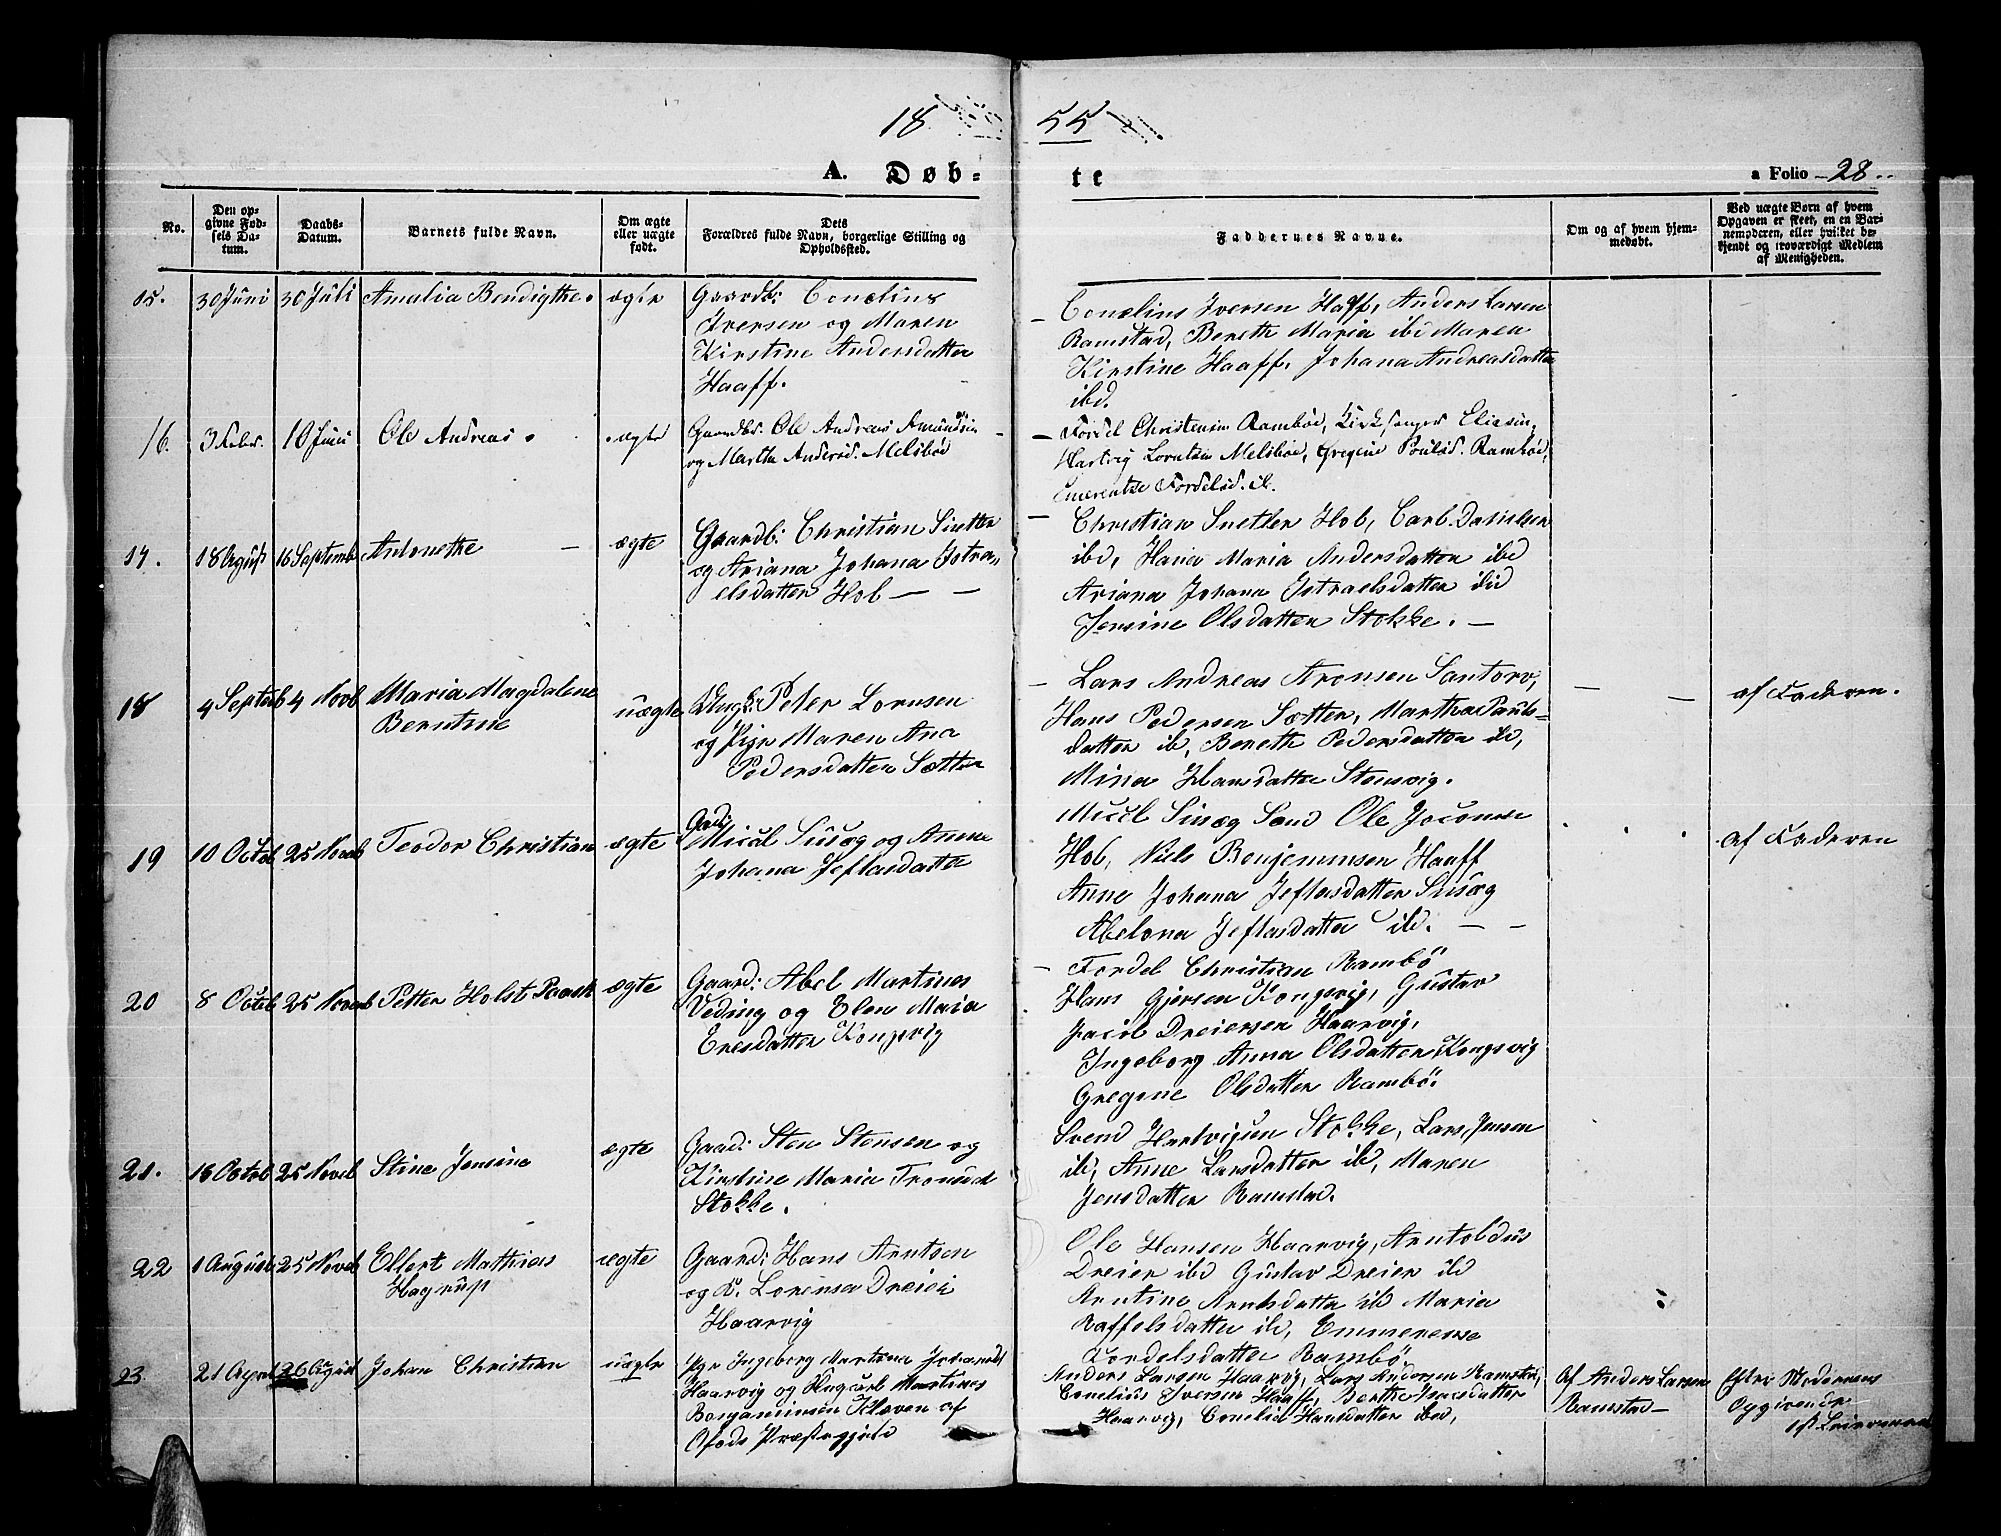 18 55
A. Døb- te
a Folio 28
No.
Den op-
givne Fød-
sels Da-
tum.
Daabs-
Datum.
Barnets fulde Navn.
Om ægte
eller uægte
født.
Dets
Forældres fulde Navn, borgerlige Stilling og
Opholdssted.
Faddernes Navne.
Om og af hvem hjem-
medøbt.
Ved uægte Børn af hvem
Opgaven er skeet, en en Bar-
nemoderen, eller hvilket be-
kjendt og troværdigt Medlem
af Menigheden.
15. 30 Juni 30 Juli Amalia Bendigthe. ægte
Gaardb: Conelius
Iversen og Maren
Kirstine Andersdatter
Haaff.
Conelius Iversen Haaff, Anders Larsen
Ramstad, Bereth Maria ibd Maren
Kirstine Haaff, Johana Andreasdatter
ibd.
16. 3 Febr. 10 Juni Ole Andreas ægte
Gaardbr. Ole Andreas
og Martha Andersd. Melsbød
Fordel Christensen Rambød, Kirkesanger Eliesen,
Hartvig Lorntsen Melsbød, Gregine Poulsd. Rambød,
Emerentse Fordelsd. ib.
17. 18 Agust 16 Septemb Antonethe ægte
Gaardb: Christian Sretter
og Ariana Johana Istra-
elsdatter Hol
Christian Sretter Hol, Carl Danielsen
ibd, Hana Maria Andersdatter ibd
Ariana Johana Istraelsdatter ibd
Jensine Olsdatter Stokke.
18 4 Septeb 4 Novb Maria Magdalene
Berntine uægte
Ungk: Peter Lornsen
og Pige Maren Ana
Pedersdatter Sætter
Lars Andreas Aronsen Santorv,
Hans Pedersen Sætter, Martha Pauls-
datter ib, Bereth Pedersdatter ibd,
Mina Hansdatter Stensvig.
af Faderen.
19 10 Octob 25 Noveb Teodor Christian ægte
Gad:
Micel Sisæg og Anne
Johana Jeftasdatter
Micel Sisæg Sand Ole
Hol, Niels Benjeminsen Haaff
Anne Johana Jeftasdatter Sisæg
Abelona Jeftasdatter ibd.
af Faderen
20 8 Octob 25 Noveb Petter Holst Paask ægte
Gaard: Abel Martines
Veding og Elen Maria
Eresdatter Kongsvig
Fordel Christian Rambö
Hans Gjersen Kongsvig, Gustav
Jacob Dreiersen Haarvig,
Ingeborg Anna Olsdatter Kongsvig
Gregine Olsdatter Rambö.
21. 16 Octob 25 Noveb Stine Jensine ægte
Gaad: Sten Stensen og
Kirstine Maria
Stokke.
Svend Hartvigsen Stokke, Lars Jensen
ib, Anne Larsdatter ibd, Maren
Jensdatter Ramstad.
22 1 August 25 Noveb Ellert Mathias
Hagrup ægte
Gaard: Hans Arntsen
og K. Lorensa Dreier
Haarvig
Ole Hansen Haarvig, Arntoldus
Dreier ibd Gustav Dreier ibd
Arntine Arntsdatter ibd Maria
Raffelsdatter ibd, Emmerense
Fordelsdatter Rambö
23 21 April 26 August Johan Christian uægte
Pige Ingeborg Martina
Haarvig og Ungkarl Martines
Benjaminsen Kleven af
Ofods Præstegjeld
Anders Larsen Haarvig, Lars Andersen Ramstad,
Conelius Iversen Haaff, Berthe Isacsdatter
Haarvig, Conelia Hansdatter ibd,
Af Anders Larsen
Ramstad
Efter Moderens
Opgivende
1ste Leiermaal